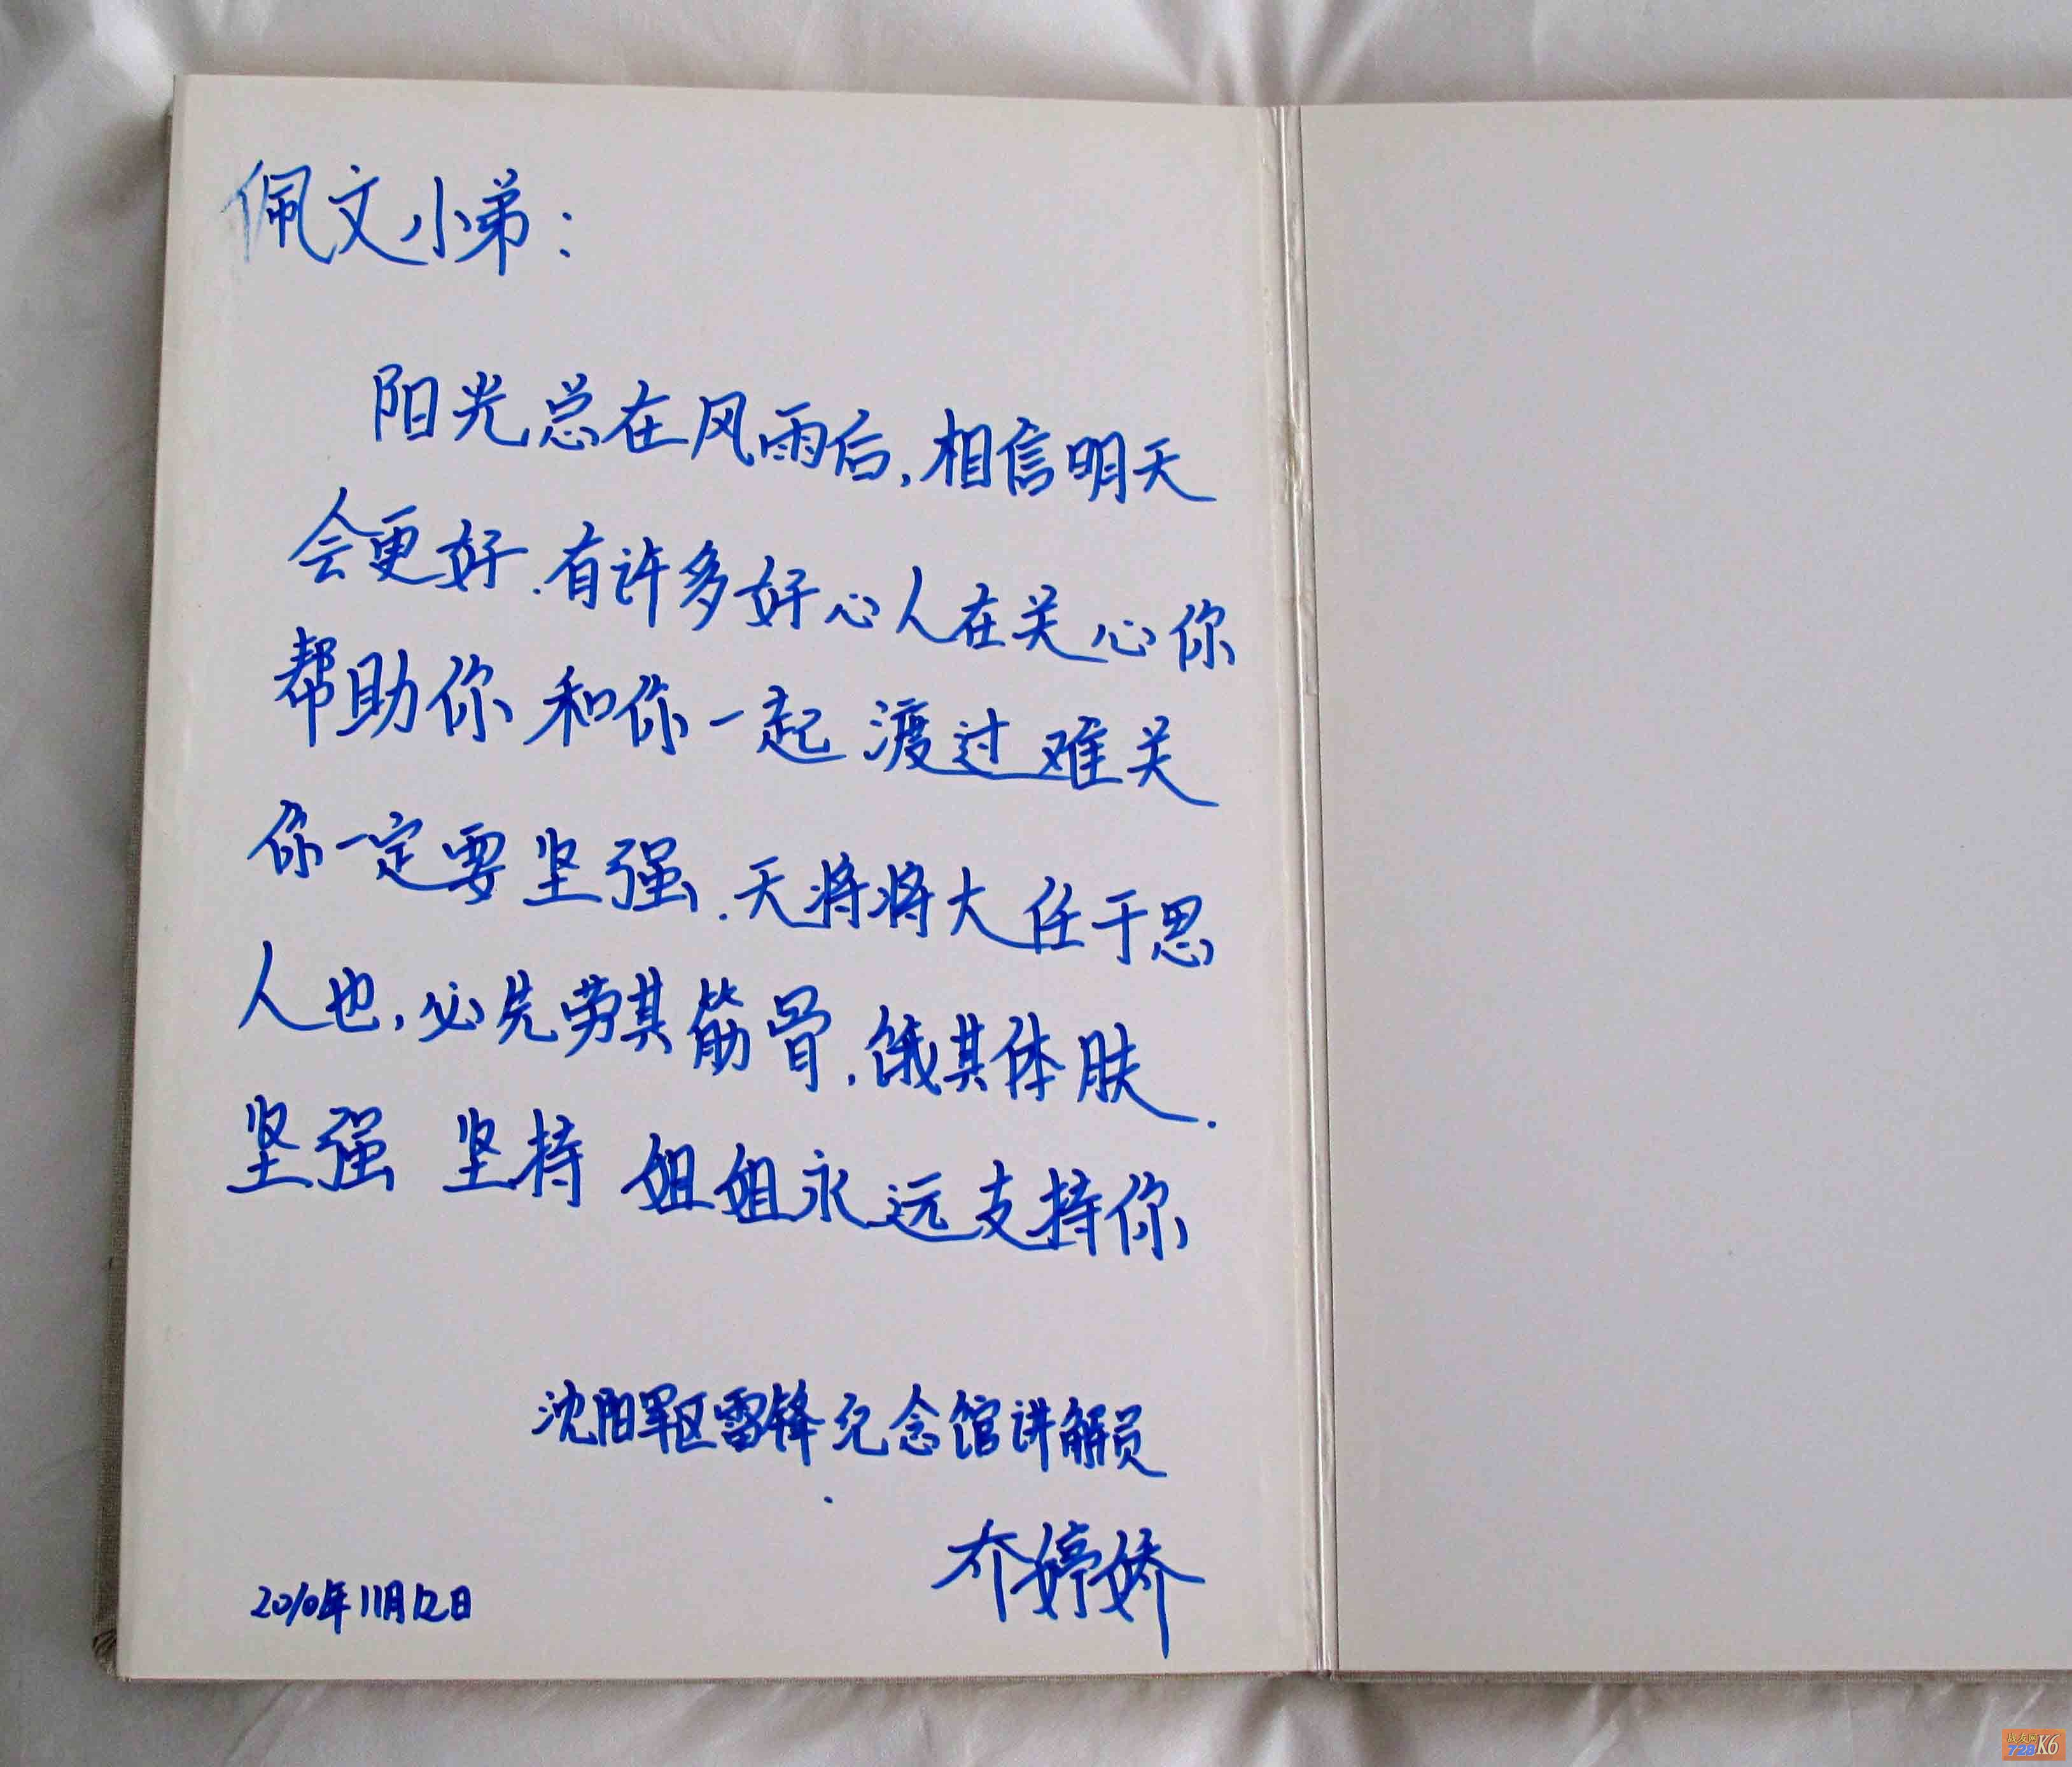 佩文小弟：
阳光总在风雨后,相信明天
会更好.有许多好心人在关心你
帮助你 和你一起渡过难关
你一定要坚强.天将将大任于思
人也,必先劳其筋骨,饿其体肤.
坚强 坚持 姐姐永远支持你
沈阳军区雷锋纪念馆讲解员
乔婷娇
2010年11月12日
战友网
728K6